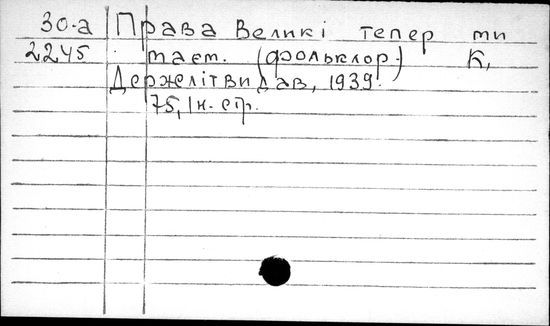 30-а Права Великі тепер ми
2245 маєм. (фольклор.) К,
Держлітвидав, 1939.
75, 1 н. стр.